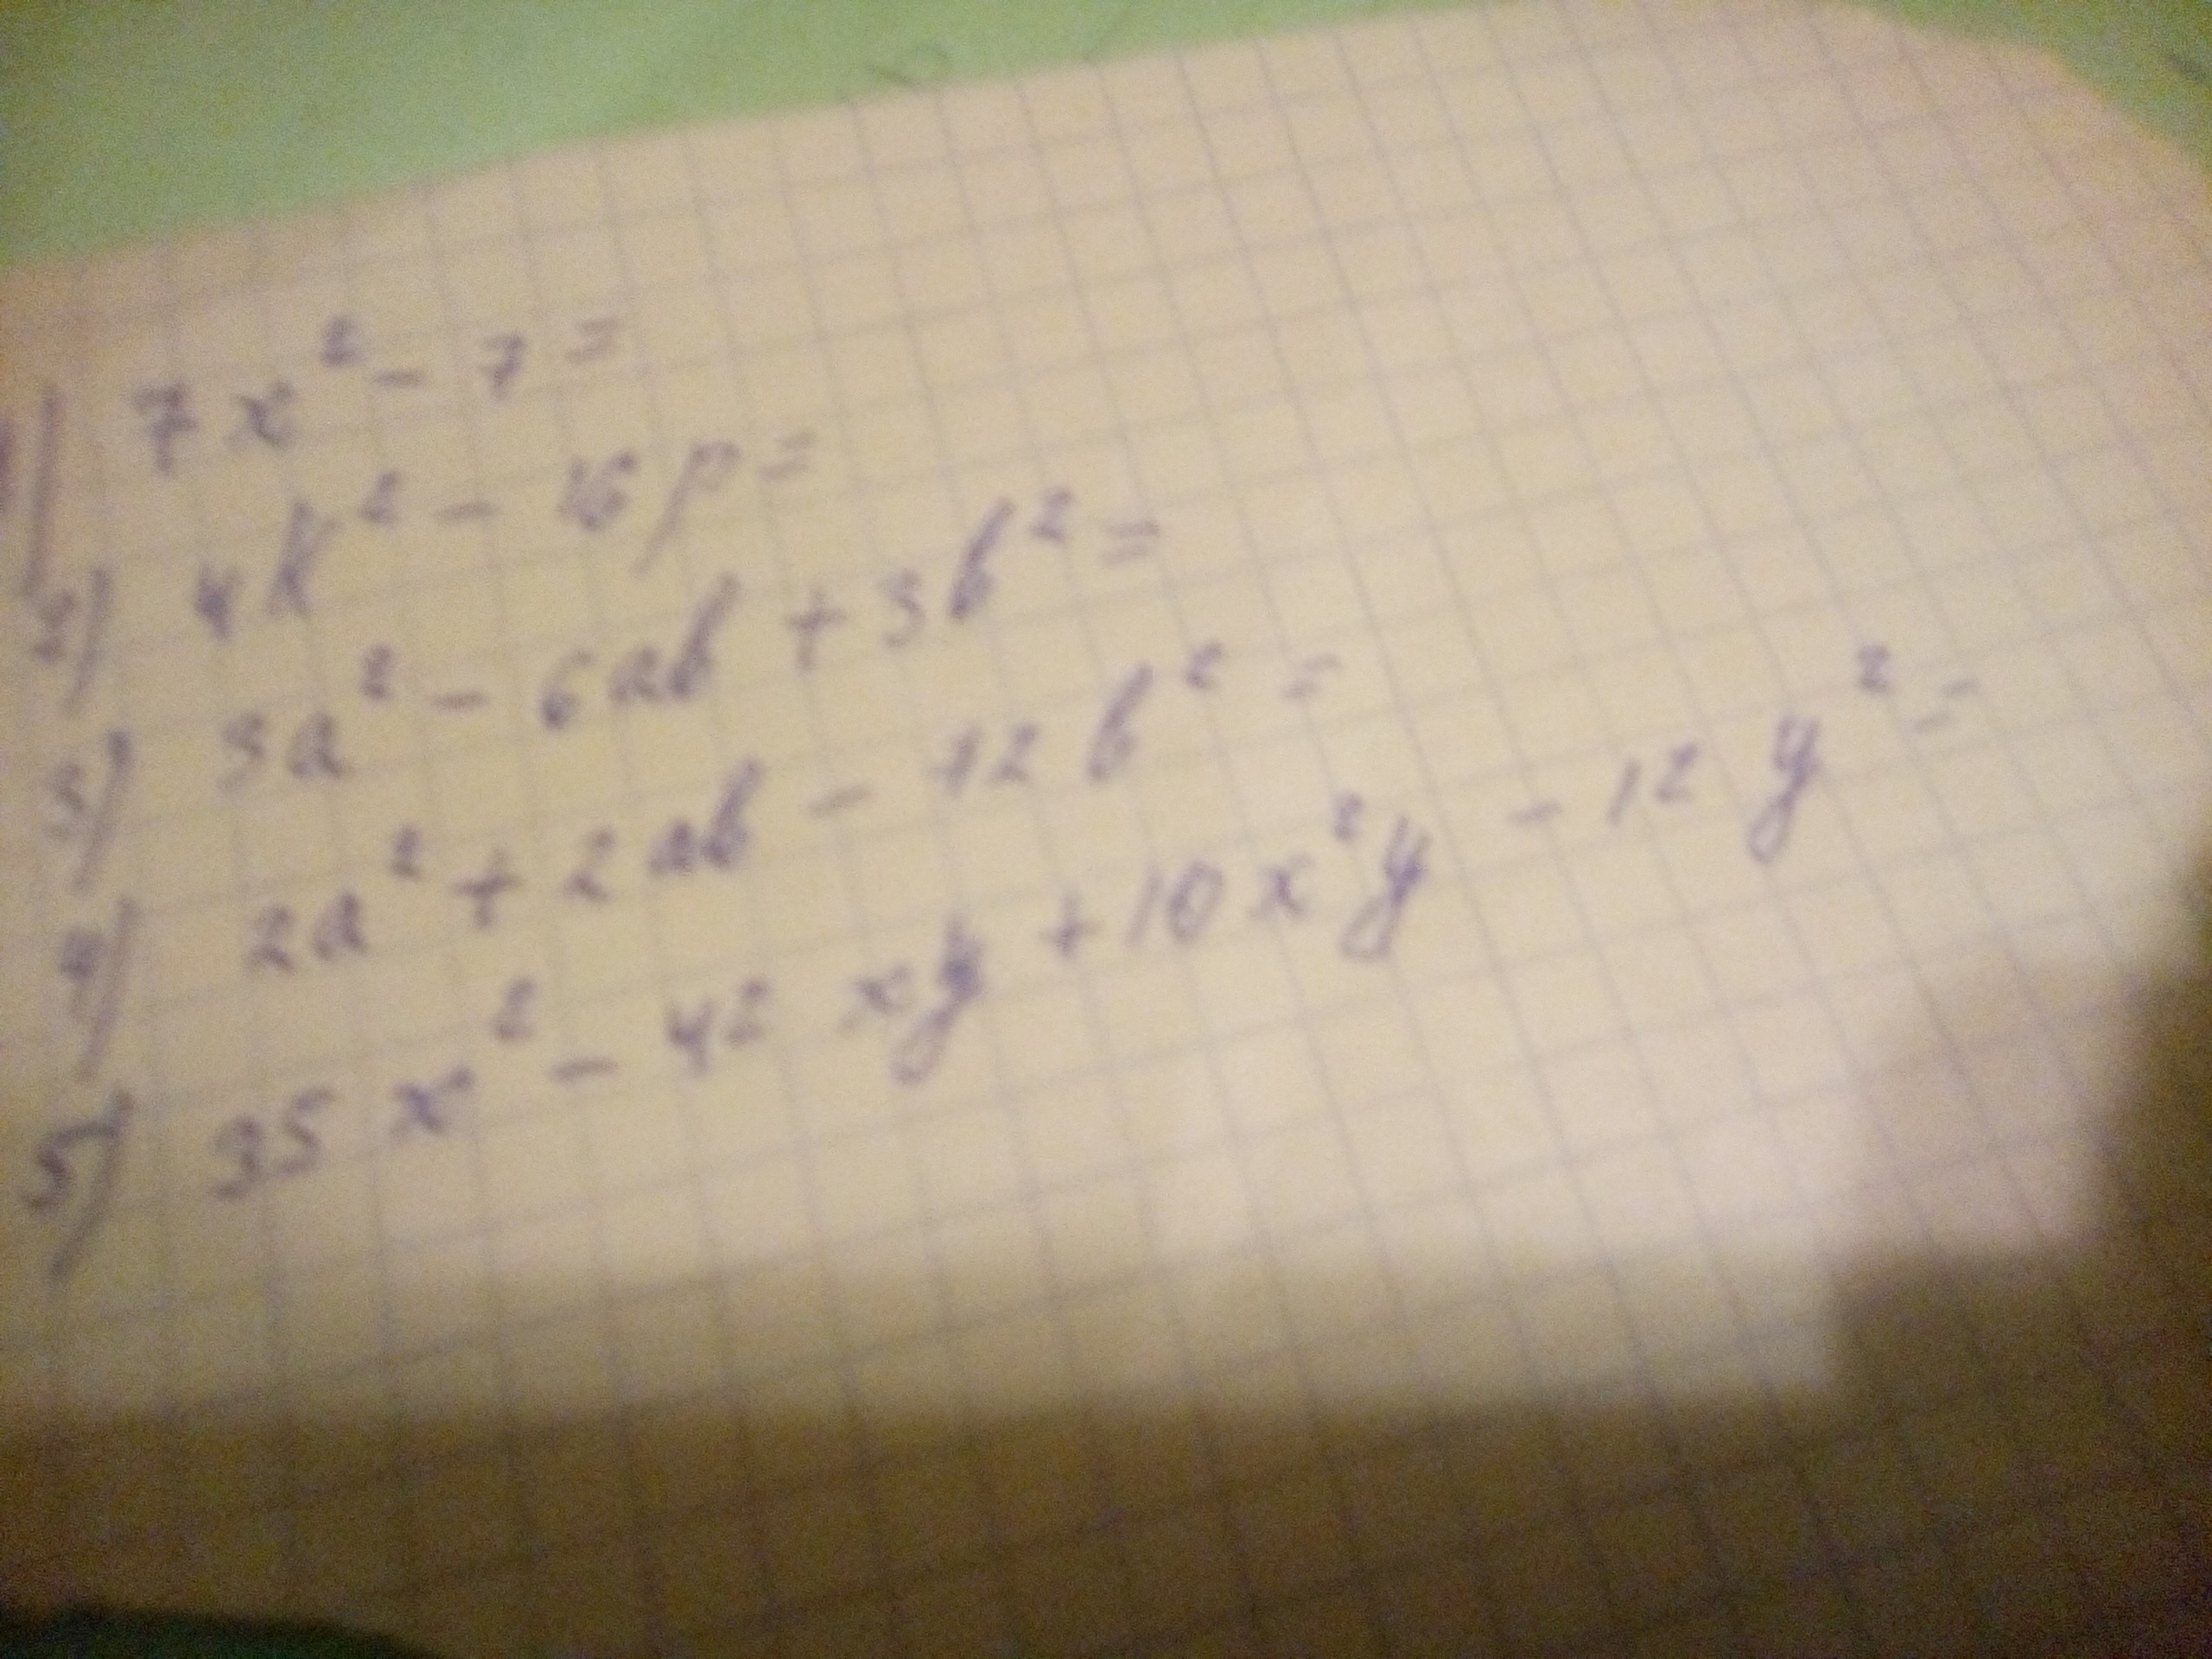 1) 7x² - 7 =
2) 4k² - 16p =
3) 3a² - 6ab + 3b² =
4) 2a² + 2ab - 12b² =
5) 35x² - 42xy + 10x²y - 12y² =